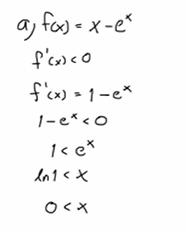 a) f(x) = x - eˣ
f'(x) < 0
f'(x) = 1 - eˣ
1 - eˣ < 0
1 < eˣ
ln 1 < x
0 < x